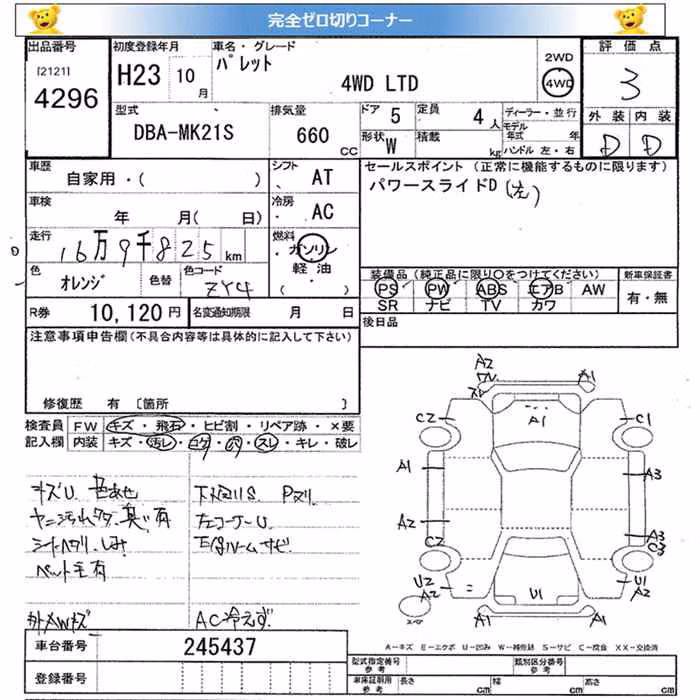 完全ゼロ切りコーナー
出品番号
[2121]
4296
初度登録年月
H23 10月
車名・グレード
パレット
4WD LTD
2WD
4WD
評価点
3
外装 内装
D D
型式
DBA-MK21S
排気量
660 CC
ドア 5
定員 4人
形状 W
積載 kg
ディーラー・並行
モデル年式 年
ハンドル 左・右
車歴
自家用・( )
シフト
AT
車検
年 月( 日)
冷房
AC
走行
16万9千825km
燃料
ガソリン
軽油
( )
色
オレンジ
色替
色コード
ZY4
R券 10,120円
名変通知期限 月 日
セールスポイント (正常に機能するものに限ります)
パワースライドD(左)
装備品(純正品に限り○をつけてください)
新車保証書
PS PW ABS エアB AW
有・無
SR ナビ TV カワ
後日品
注意事項申告欄(不具合内容等は具体的に記入して下さい)
修復歴 有 [箇所 ]
検査員記入欄
FW キズ・飛石・ヒビ割・リペア跡・×要
内装 キズ・汚レ・コゲ・穴・スレ・キレ・破レ
キズU 色あせ
ヤニ汚れ
臭い有
シートヘタリ.しみ
ペット毛有
下廻りS Pヌリ
左コーナーU
AC冷えず
車台番号
245437
登録番号
A2
A1
A1
C2
C1
A1
A3
A2
A3
C2
C3
U2
A2
U1
U1
A2
A1
A1
A−キズ E−エクボ U−凹み W−補修跡 S−サビ C−腐食 XX−交換済
型式指定番号
参考
類別区分番号
参考
車庫証明用
参考
長さ cm
幅 cm
高さ cm